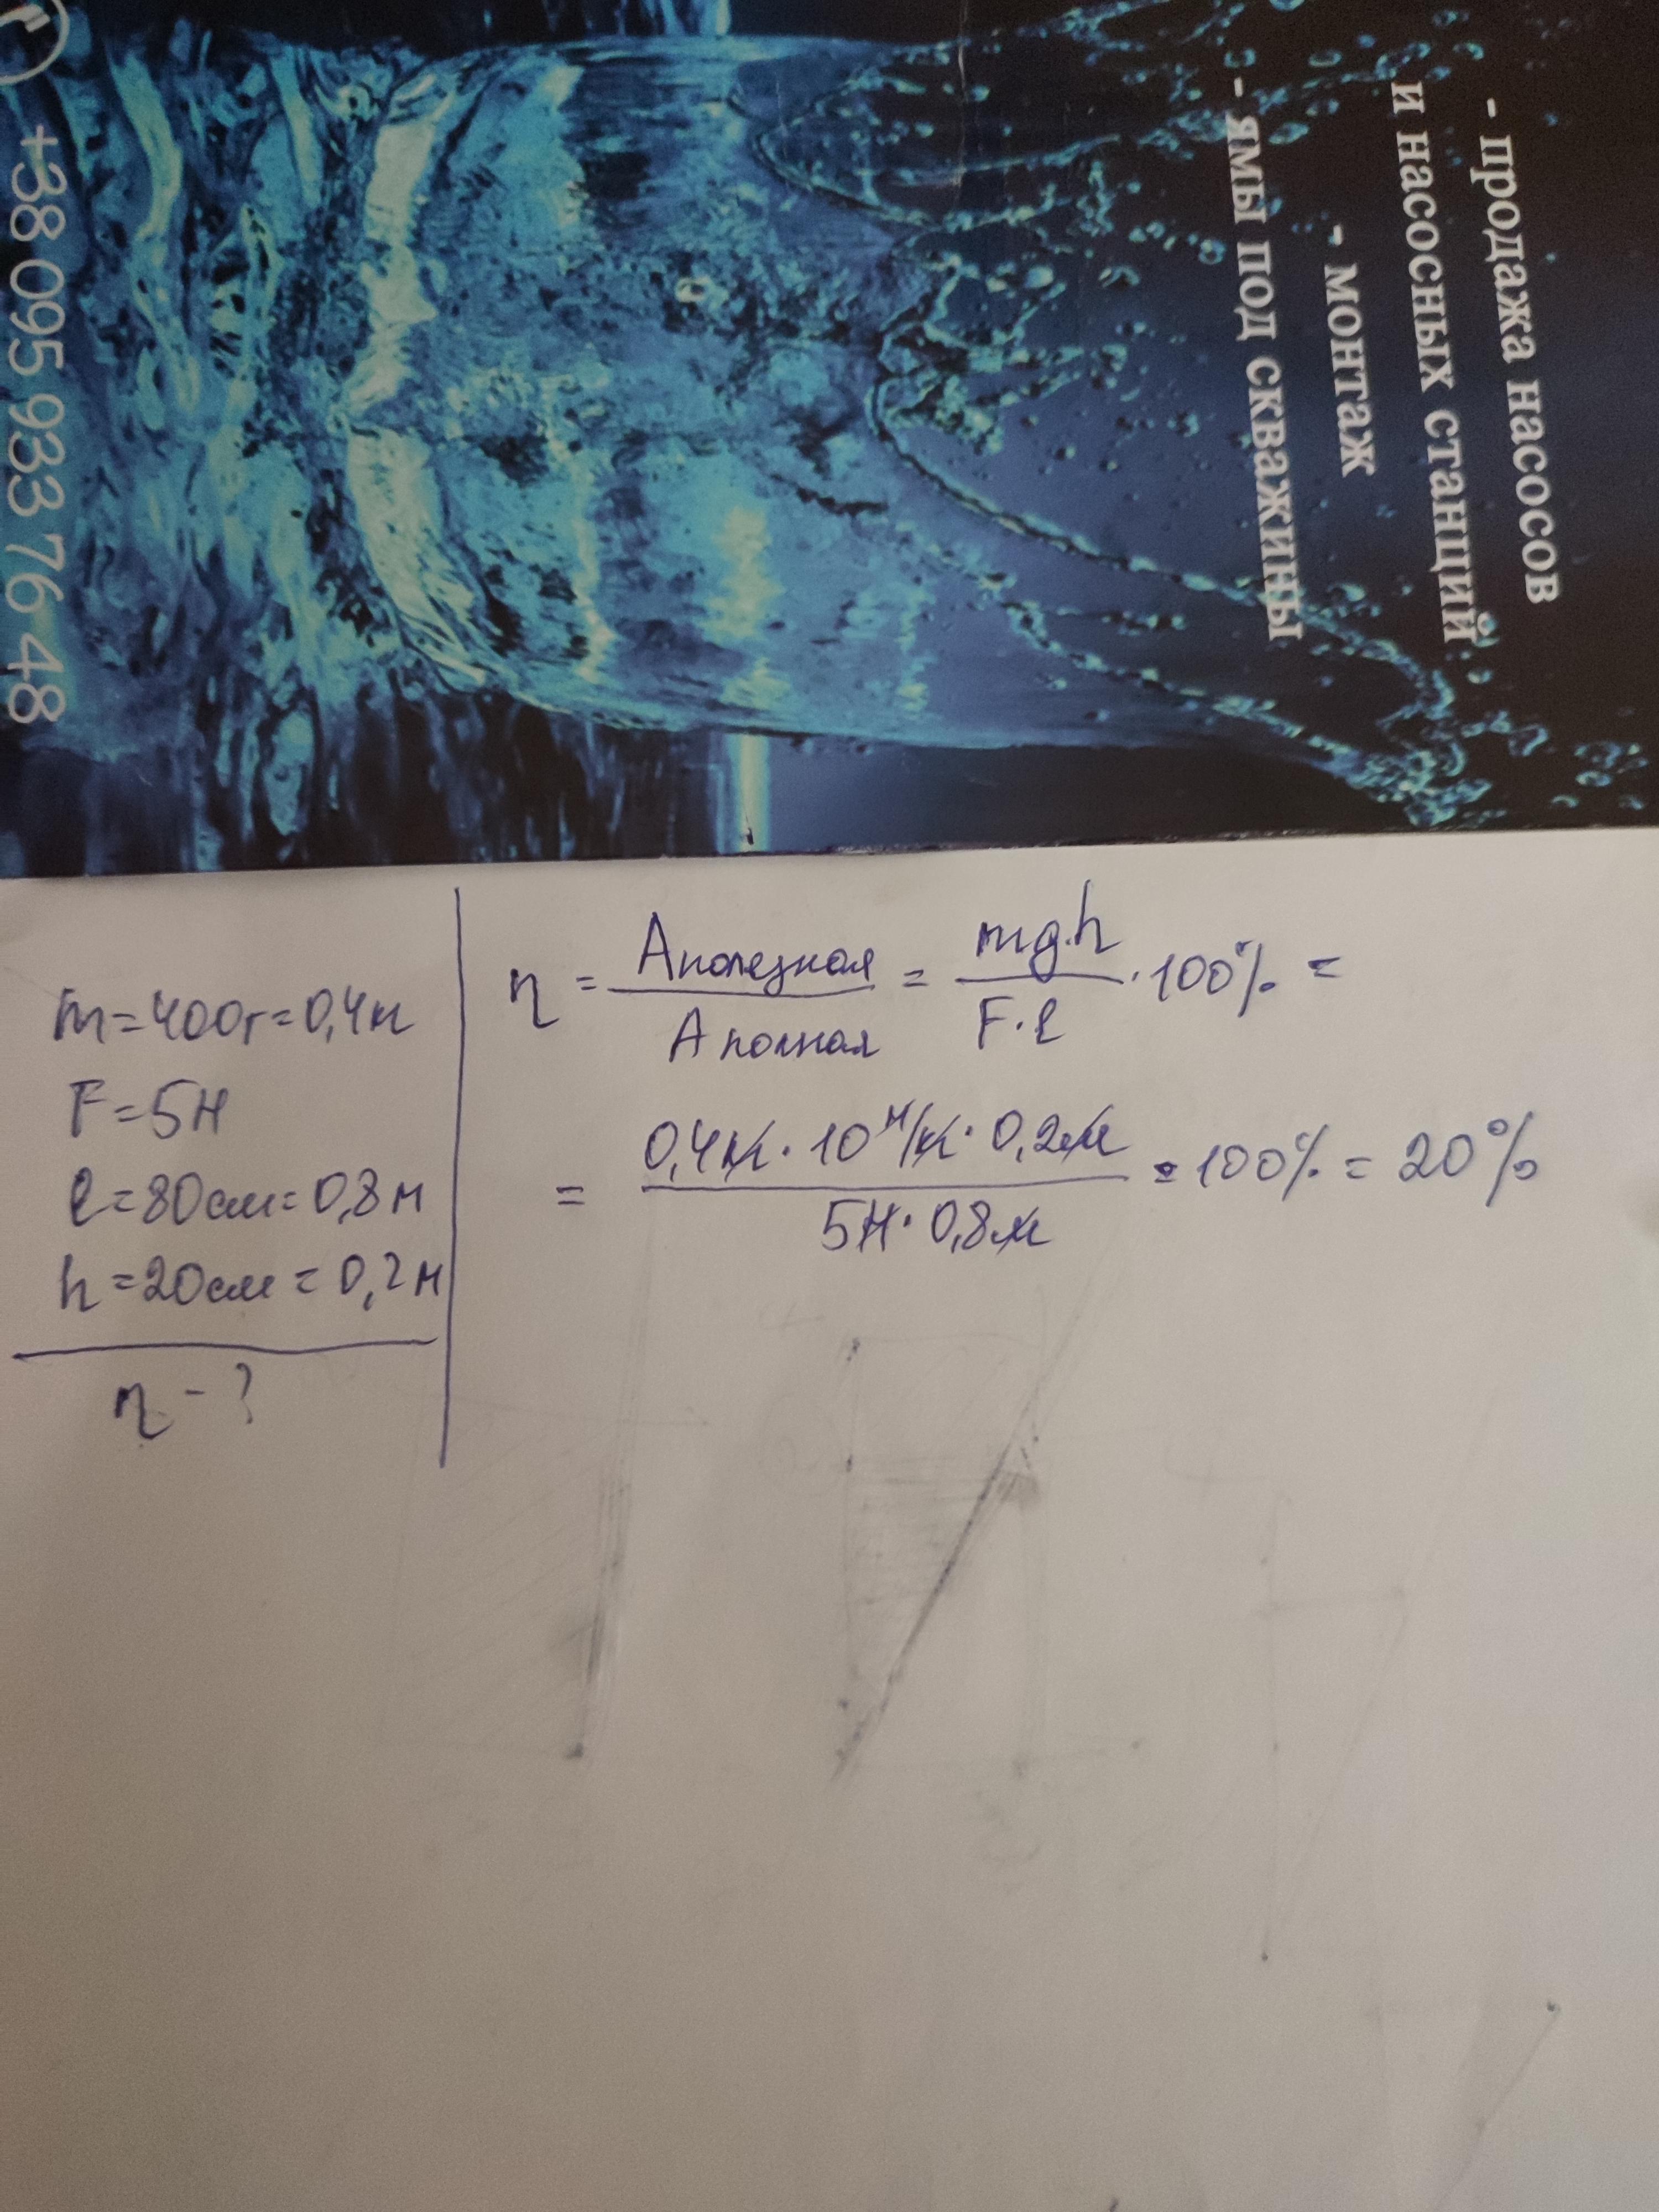 - продажа насосов
и насосных станций
- монтаж
- ямы под скважины
+38 095 933 76 48
m=400г=0,4кг
F=5Н
l=80см=0,8м
h=20см=0,2м
η-?
η = Aполезная / Aполная = mg·h / F·l ·100% =
= 0,4кг·10Н/кг·0,2м / 5Н·0,8м ·100% = 20%